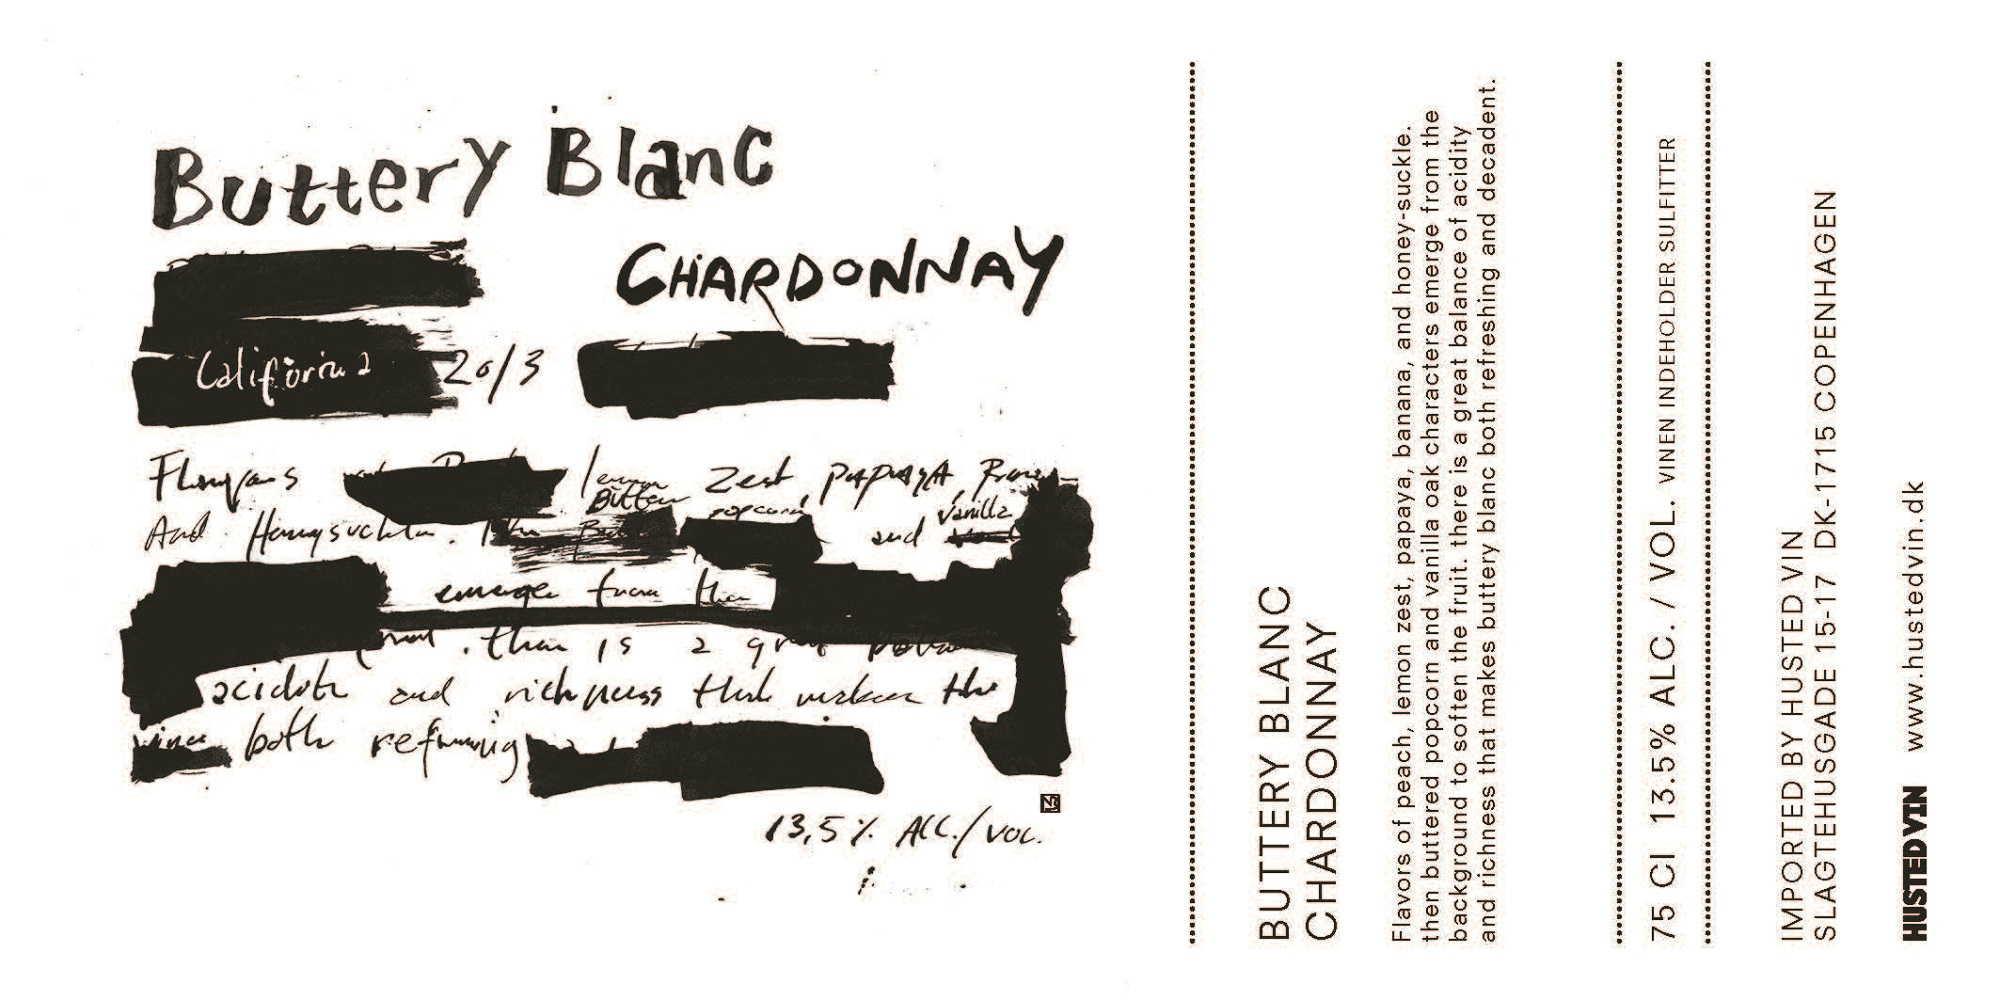 Buttery Blanc
CHARDONNAY
California 2013
lemon zest, papaya
Butter popcorn vanilla
And Honeysuckle. and
emerge from the
is a
acidity and richness that makes the
both
13,5% ALC./VOL.
BUTTERY BLANC
CHARDONNAY
Flavors of peach, lemon zest, papaya, banana, and honey-suckle.
then buttered popcorn and vanilla oak characters emerge from the
background to soften the fruit. there is a great balance of acidity
and richness that makes buttery blanc both refreshing and decadent.
75 Cl 13.5% ALC. / VOL. VINEN INDEHOLDER SULFITTER
IMPORTED BY HUSTED VIN
SLAGTEHUSGADE 15-17 DK-1715 COPENHAGEN
HUSTED VIN www.hustedvin.dk